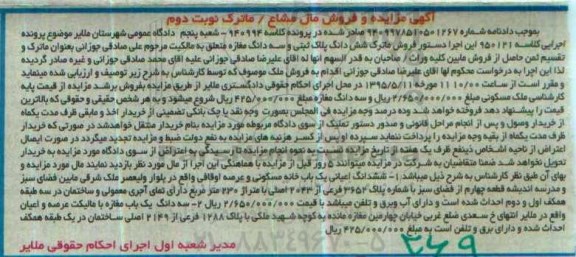 آگهی مزایده و فروش مال مشاع / ماترک نوبت دوم
بموجب دادنامه شماره ۹۴۰۹۹۷۸۵۱۰۵۰۱۲۶۷ صادر شده در پرونده کلاسه ۹۴۰۹۹۴ شعبه پنجم دادگاه عمومی شهرستان ملایر موضوع پرونده
اجرایی کلاسه ۹۵۰۱۲۱ این اجرا دستور فروش ماترک شش دانگ پلاک ثبتی و سه دانگ مغازه متعلق به مالکیت مرحوم علی صادقی جوزانی بعنوان ماترک و
تقسیم ثمن حاصل از فروش مابین کلیه وراث / صاحبان به قدر السهم آنها له آقای علیرضا صادقی جوزانی علیه آقای محمد صادقی جوزانی و غیره صادر گردیده
لذا این اجرا به درخواست محکوم لها آقای علیرضا صادقی جوزانی اقدام به فروش ملک موصوف که توسط کارشناس به شرح زیر توصیف و ارزیابی شده مینماید
و مقرر است از ساعت ۱۰:۰۰ الی ۱۱ مورخه ۱۳۹۵/۰۵/۱۱ در محل اجرای احکام حقوقی دادگستری ملایر از طریق مزایده بفروش برسد مزایده از قیمت پایه
کارشناسی ملک مسکونی مبلغ ۲/۶۵۰/۰۰۰/۰۰۰ ریال و سه دانگ مغازه مبلغ ۴۲۵/۰۰۰/۰۰۰ ریال شروع میشود و به هر شخص حقیقی و حقوقی که بالاترین
قیمت را پیشنهاد دهد فروخته خواهد شد ده درصد وجه مزایده فی المجلس بصورت وجه نقد یا چک بانکی تضمینی از خریدار اخذ و مابقی ظرف مدت یکماه
از خریدار وصول و پس از انجام مراحل قانونی و صدور دستور تملیک از سوی دادگاه مربوطه مورد مزایده بنام خریدار منتقل خواهد شد در صورتی که خریدار
ظرف مدت یکماه از بقیه وجه مزایده را پرداخت ننماید سپرده او پس از کسر هزینه های مزایده به نفع دولت ضبط و مزایده تجدید میگردد در صورت ایصال
اعتراض از ناحیه اشخاص ذینفع ظرف یک هفته از تاریخ مزایده نسبت به نحوه انجام مزایده تا رسیدگی به اعتراض از سوی دادگاه مورد مزایده به خریدار
تحویل نخواهد شد ضمنا متقاضیان به شرکت در مزایده میتوانند ۵ روز قبل از مزایده با هماهنگی این اجرا از مال مورد نظر بازدید نمایند مال مورد مزایده و
بهای آن طبق نظر کارشناس به شرح ذیل میباشد: ۱- ششدانگ اعیانی یک باب خانه مسکونی و عرصه اوقافی واقع در بلوار ولیعصر ملک شرقی مابین فضای سبز
و مدرسه اندیشه قطعه چهارم از فضای سبز با شماره پلاک ۳۶۵۲ فرعی از ۲۰۴۳ اصلی با متراژ ۲۳۰ متر مربع دارای نمای آجری معمولی و ساختمان در سه طبقه
همکف اول و دوم احداث شده است و دارای آب و برق و تلفن میباشد با قیمت ۲/۶۵۰/۰۰۰/۰۰۰ ریال ۲- سه دانگ یک باب مغازه با مالکیت عرصه و اعیان
واقع در ملایر انتهای خ سعدی ضلع غربی خیابان چهارمین مغازه مانده به کوچه شهید ملکی با پلاک ۱۲۸۸ فرعی از ۲۱۴۹ اصلی ساختمان در یک طبقه همکف
احداث شده و دارای برق و تلفن است به مبلغ ۴۲۵/۰۰۰/۰۰۰ ریال
مدیر شعبه اول اجرای احکام حقوقی ملایر
۳۶۹
۰۲۱-۸۸۳۴۹۶۷۰-۵